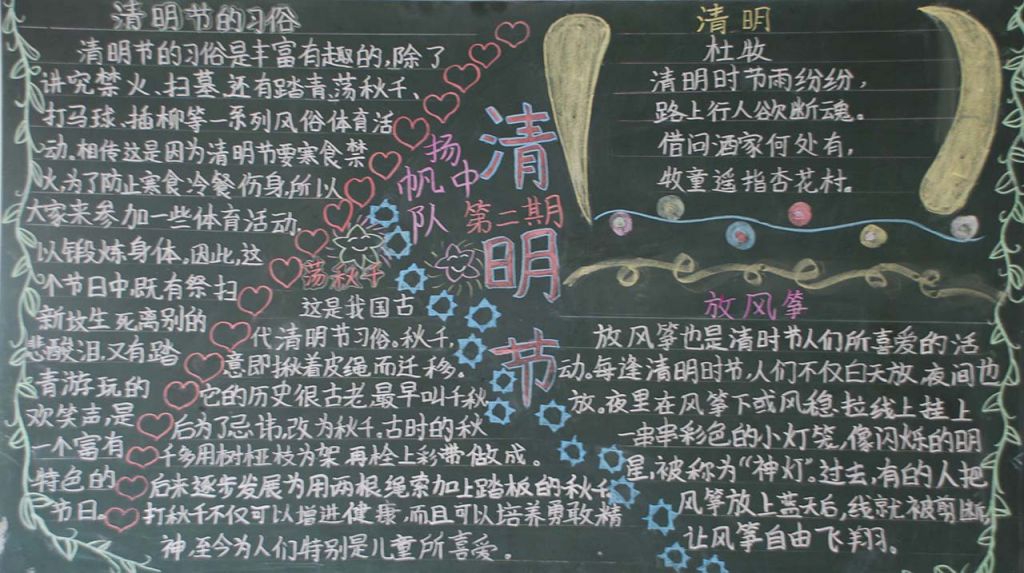 清明节的习俗
清明节的习俗是丰富有趣的,除了
讲究禁火、扫墓,还有踏青、荡秋千、
打马球、插柳等一系列风俗体育活
动。相传这是因为清明节要寒食禁
火,为了防止寒食冷餐伤身,所以
大家来参加一些体育活动,
以锻炼身体,因此,这
个节日中,既有祭扫
新坟生死离别的
悲酸泪,又有踏
青游玩的
欢笑声,是
一个富有
特色的
节日。
荡秋千
这是我国古
代清明节习俗。秋千,
意即揪着皮绳而迁移。
它的历史很古老,最早叫千秋
后为了忌讳,改为秋千,古时的秋
千多用树桠枝为架,再栓上彩带做成。
后来逐步发展为用两根绳索加上踏板的秋千
打秋千不仅可以增进健康,而且可以培养勇敢精
神,至今为人们特别是儿童所喜爱。
扬
帆中
队
第二期
清
明
节
清明
杜牧
清明时节雨纷纷,
路上行人欲断魂。
借问酒家何处有,
牧童遥指杏花村。
放风筝
放风筝也是清时节人们所喜爱的活
动。每逢清明时节,人们不仅白天放,夜间也
放。夜里在风筝下或风稳拉线上挂上
一串串彩色的小灯笼,像闪烁的明
星,被称为“神灯”。过去,有的人把
风筝放上蓝天后,线就被剪断,
让风筝自由飞翔。